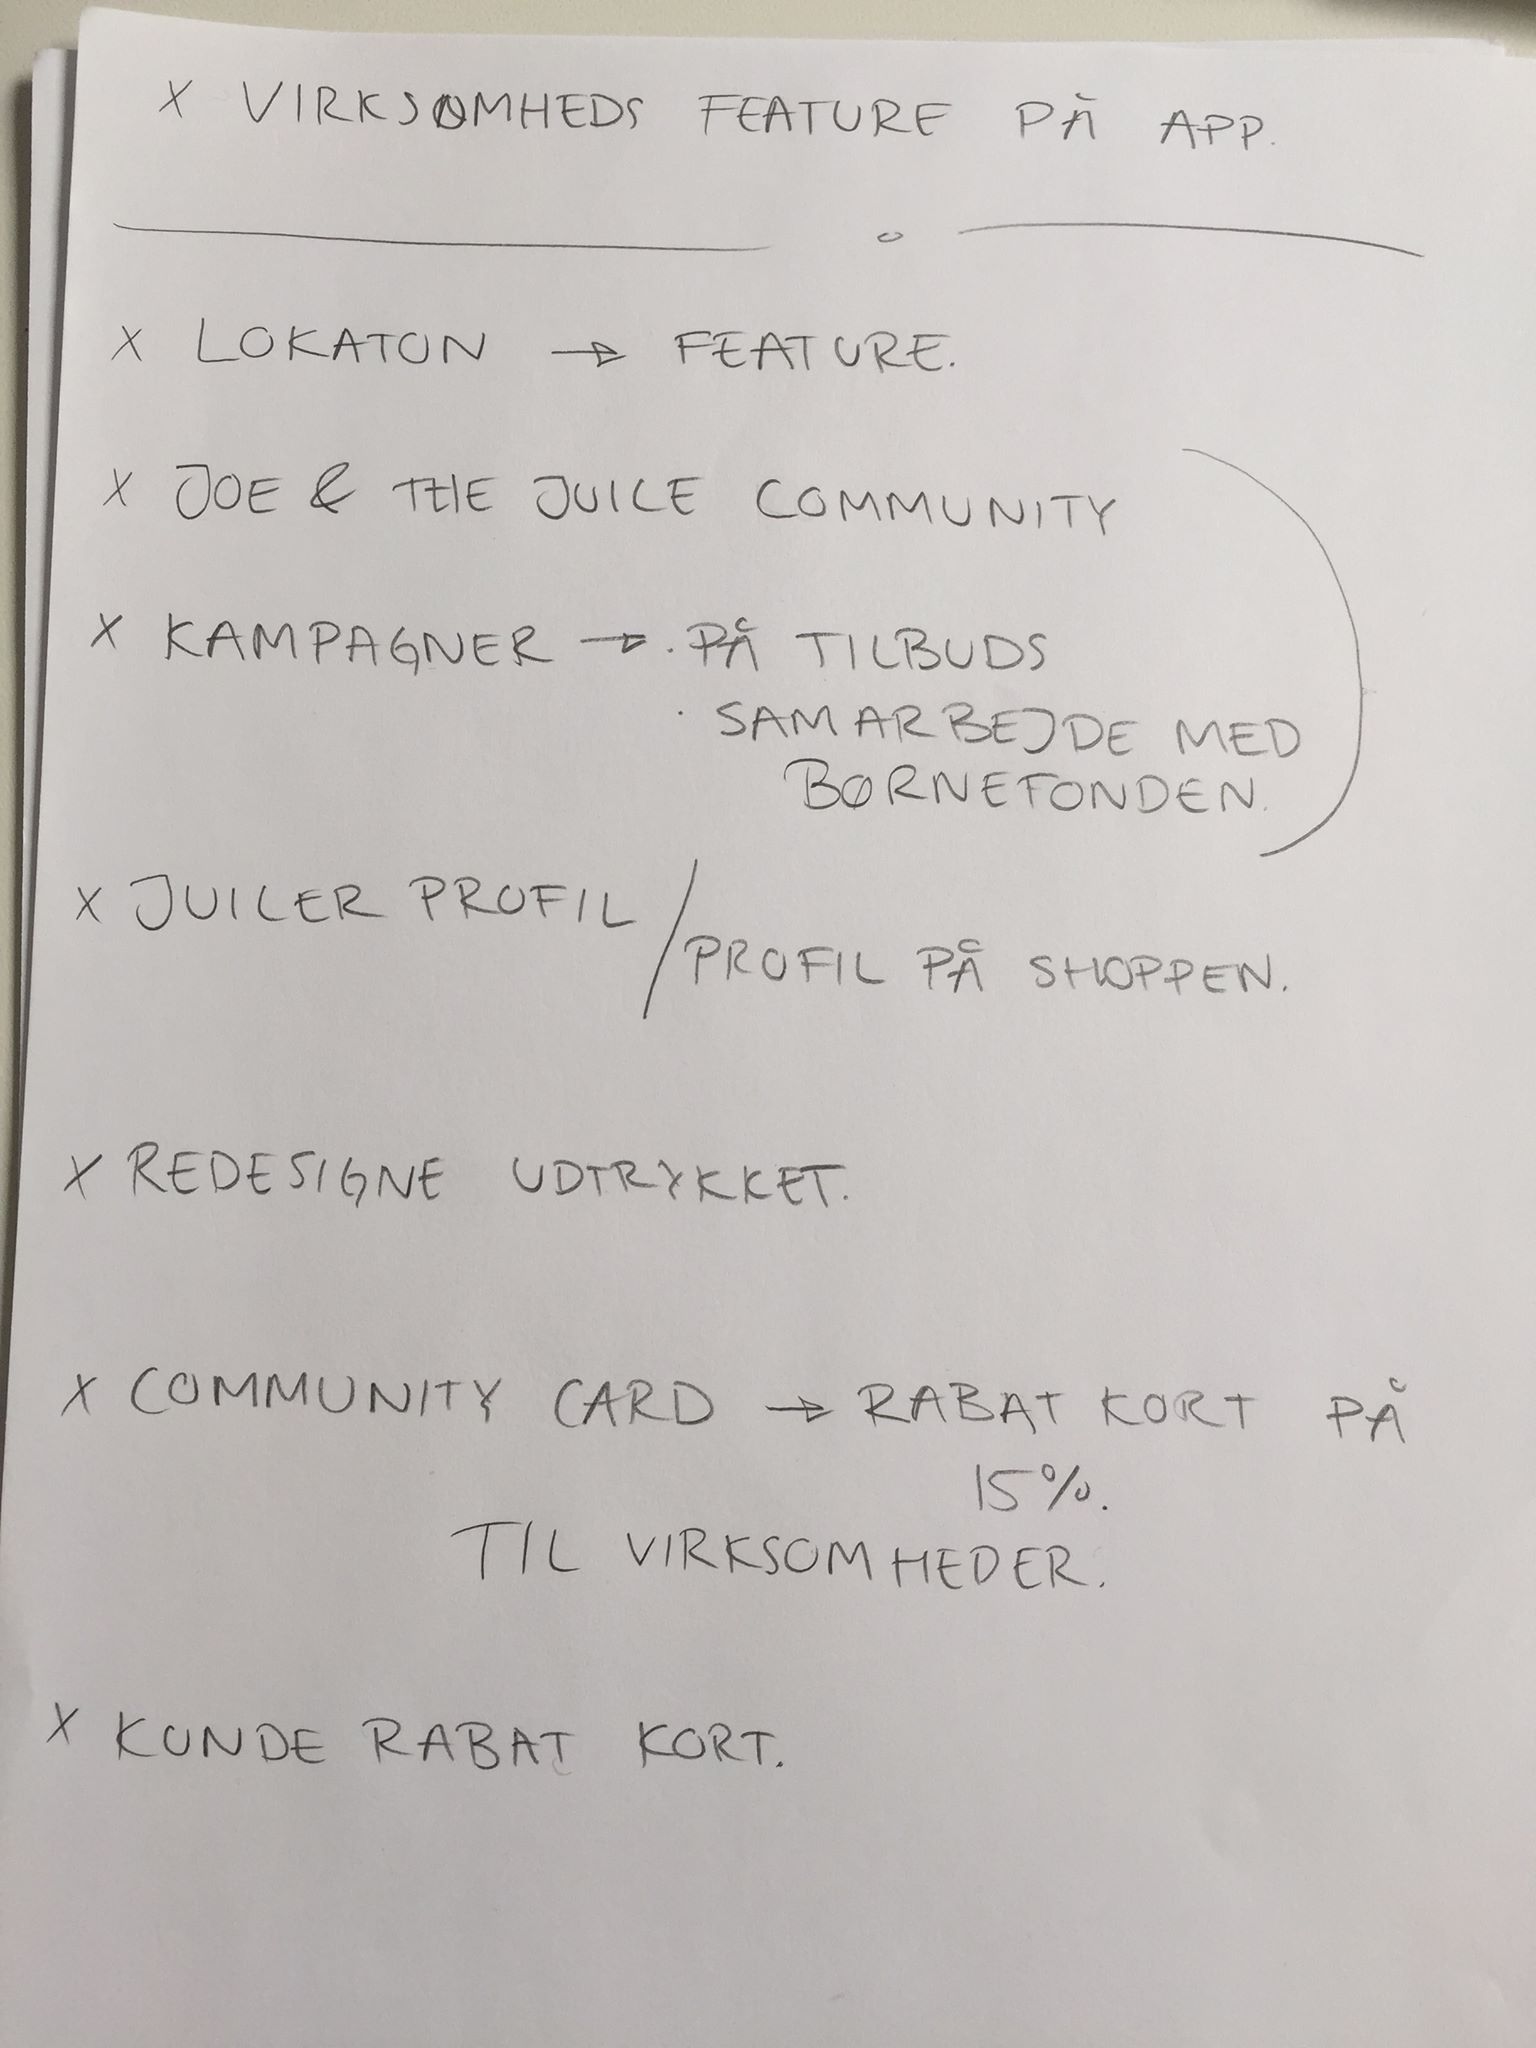 X VIRKSOMHEDS FEATURE PÅ APP.
X LOKATON → FEATURE.
X JOE & THE JUICE COMMUNITY
X KAMPAGNER → · PÅ TILBUDS
· SAMARBEJDE MED
BØRNEFONDEN.
X JUICER PROFIL /
PROFIL PÅ SHOPPEN.
X REDESIGNE UDTRYKKET.
X COMMUNITY CARD → RABAT KORT PÅ
15%.
TIL VIRKSOMHEDER.
X KUNDE RABAT KORT.